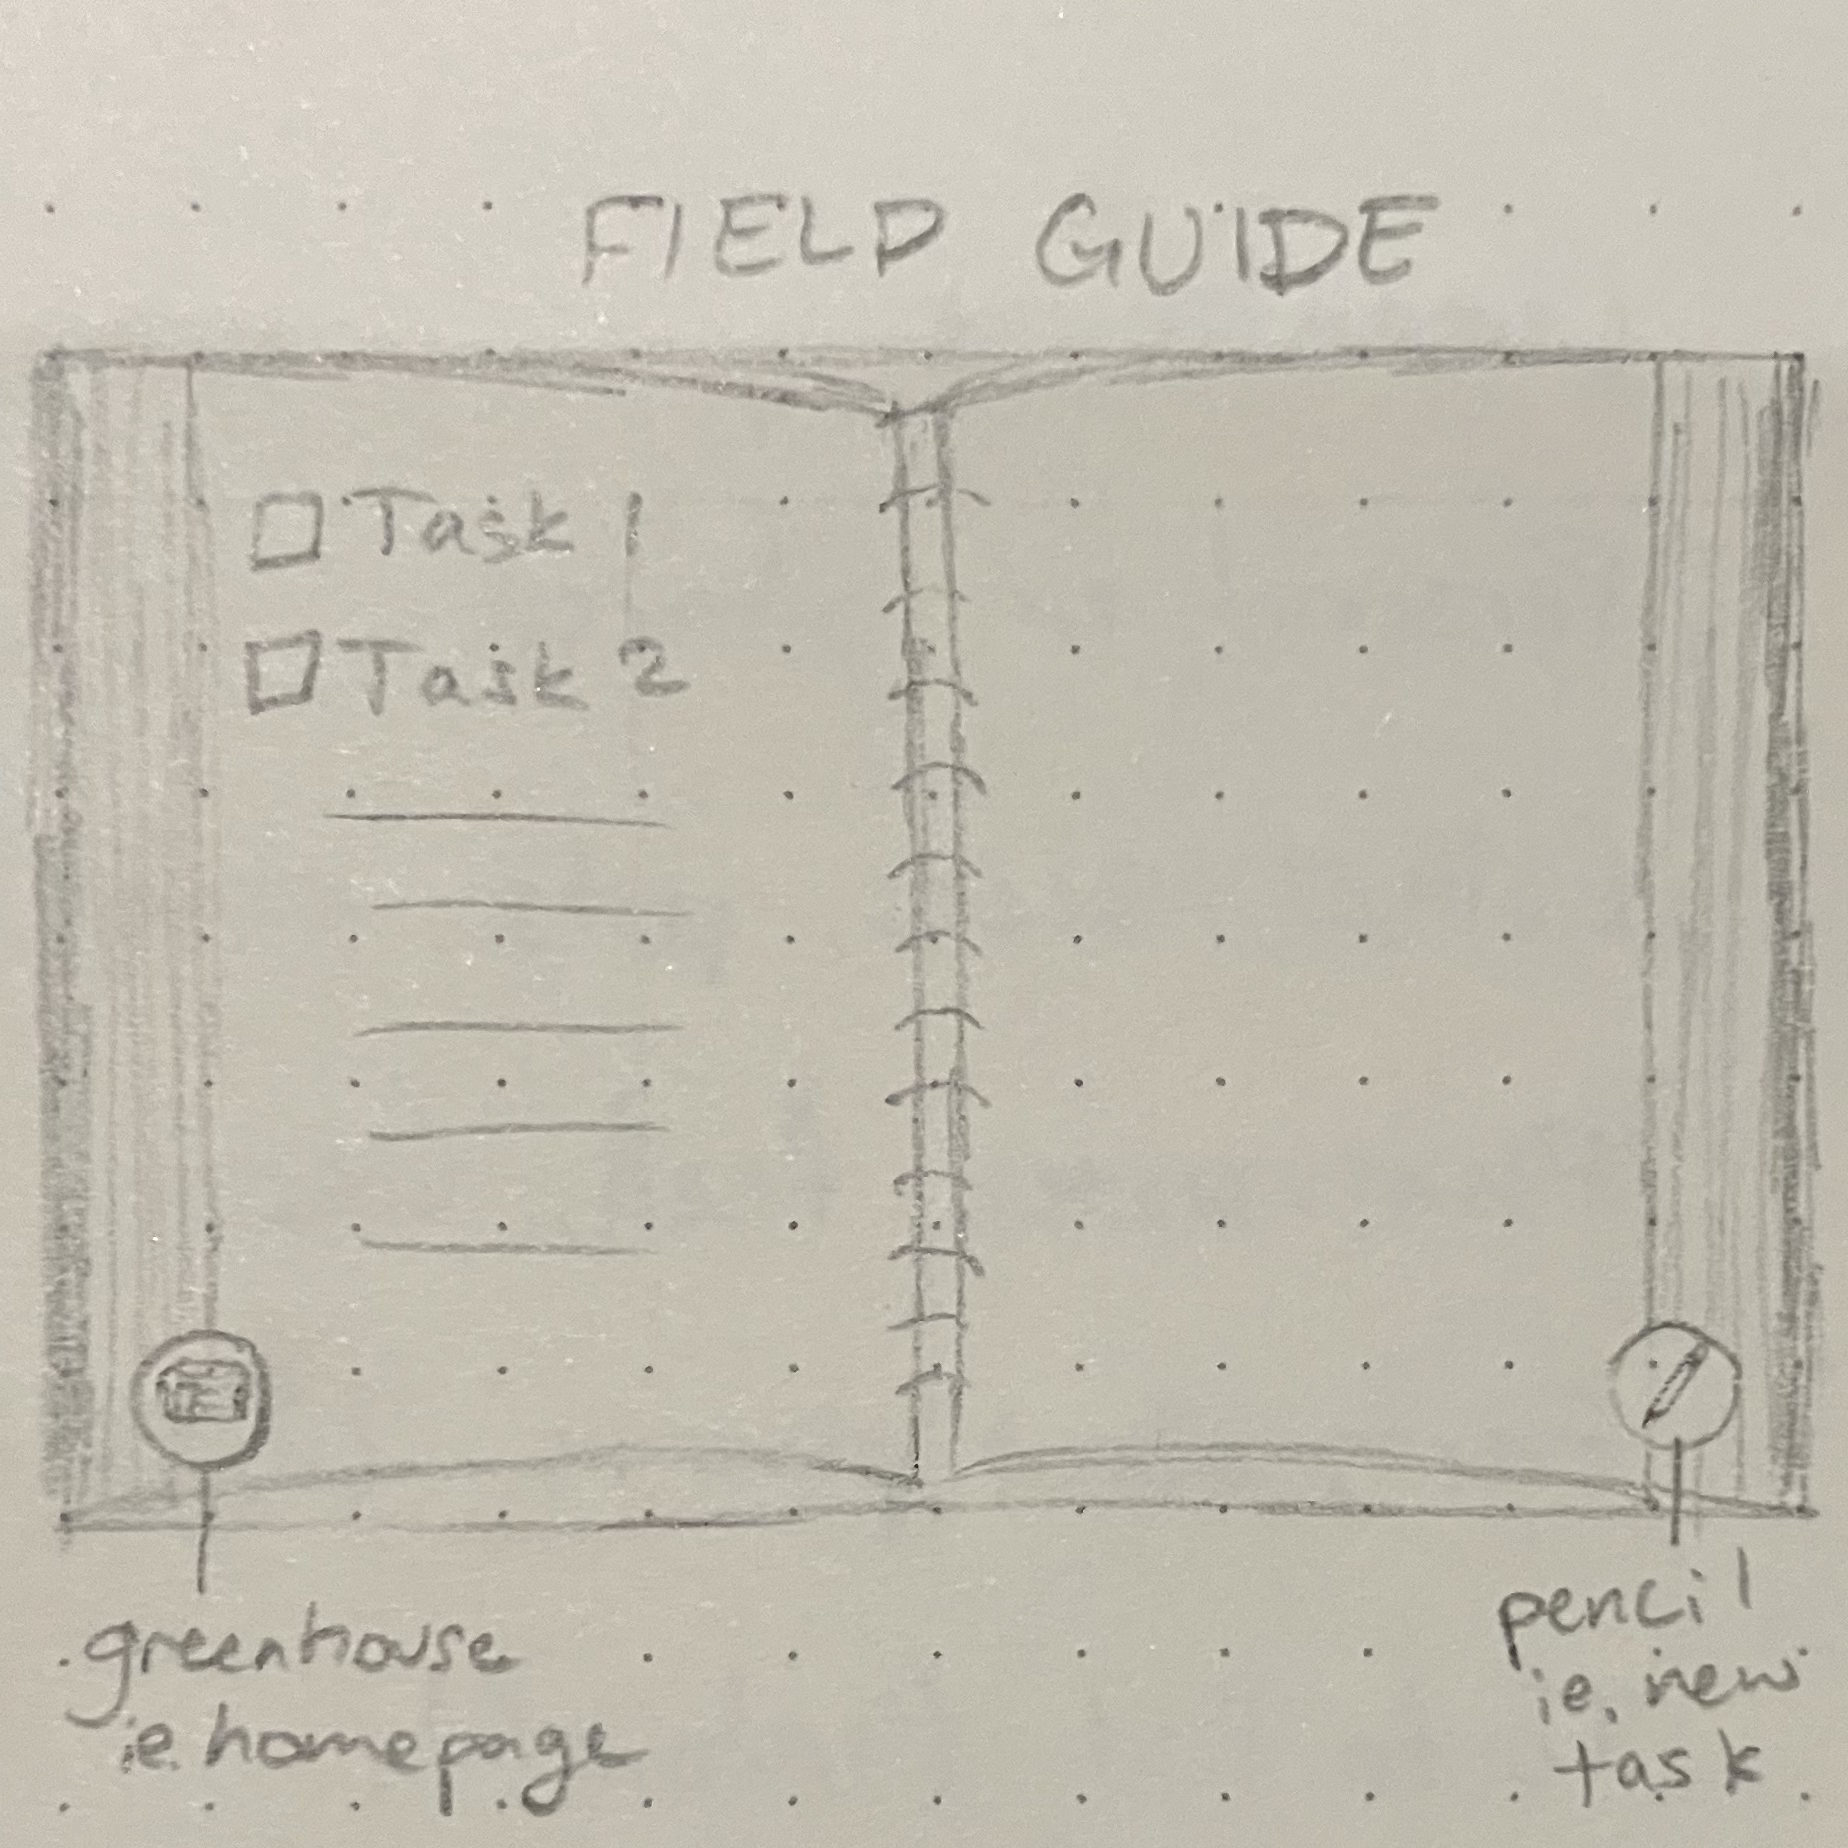 FIELD GUIDE
Task 1
Task 2
greenhouse
ie. homepage
pencil
ie. new
task